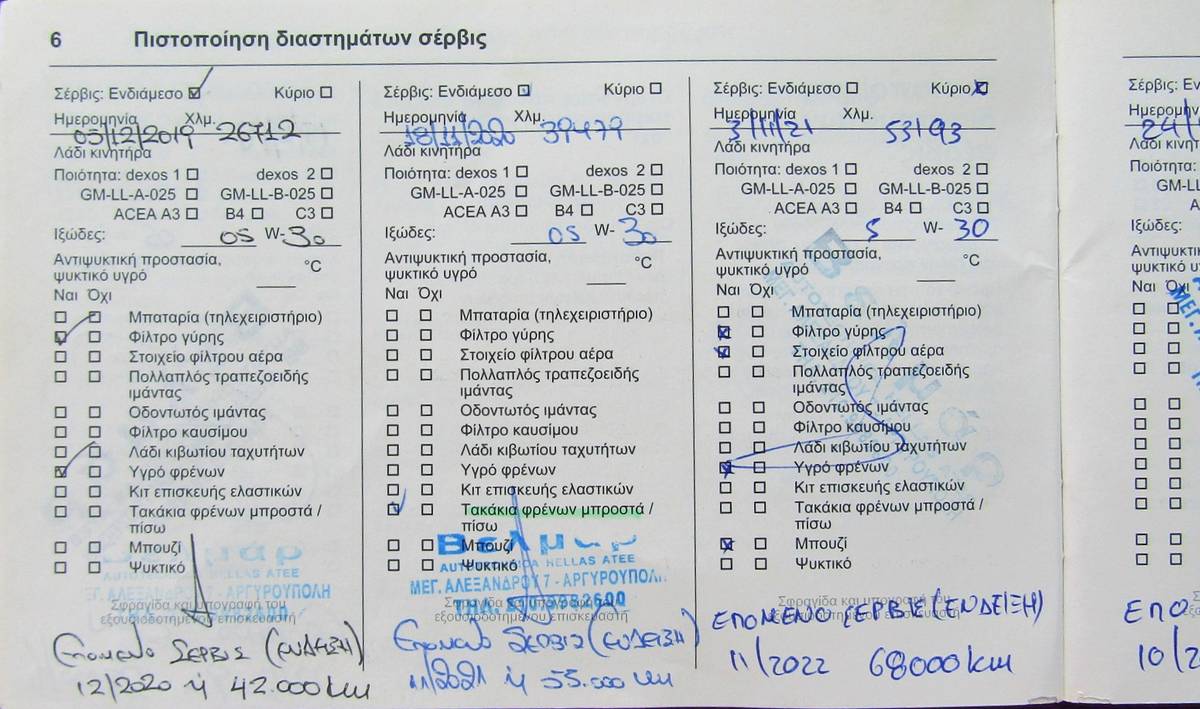 6 Πιστοποίηση διαστημάτων σέρβις
Σέρβις: Ενδιάμεσο ☑ Κύριο ☐
Ημερομηνία Χλμ.
03/12/2019 26712
Λάδι κινητήρα
Ποιότητα: dexos 1 ☐ dexos 2 ☐
GM-LL-A-025 ☐ GM-LL-B-025 ☐
ACEA A3 ☐ B4 ☐ C3 ☐
Ιξώδες: 05 W- 30
Αντιψυκτική προστασία,
ψυκτικό υγρό °C
Ναι Όχι
Μπαταρία (τηλεχειριστήριο)
Φίλτρο γύρης
Στοιχείο φίλτρου αέρα
Πολλαπλός τραπεζοειδής
ιμάντας
Οδοντωτός ιμάντας
Φίλτρο καυσίμου
Λάδι κιβωτίου ταχυτήτων
Υγρό φρένων
Κιτ επισκευής ελαστικών
Τακάκια φρένων μπροστά /
πίσω
Μπουζί
Ψυκτικό
Σφραγίδα και υπογραφή του
εξουσιοδοτημένου επισκευαστή
ΕΠΟΜΕΝΟ ΣΕΡΒΙΣ (ΕΝΔΕΙΞΗ)
12/2020 ή 42.000 km
Σέρβις: Ενδιάμεσο ☑ Κύριο ☐
Ημερομηνία Χλμ.
18/11/2020 39479
Λάδι κινητήρα
Ποιότητα: dexos 1 ☐ dexos 2 ☐
GM-LL-A-025 ☐ GM-LL-B-025 ☐
ACEA A3 ☐ B4 ☐ C3 ☐
Ιξώδες: 05 W- 30
Αντιψυκτική προστασία,
ψυκτικό υγρό °C
Ναι Όχι
Μπαταρία (τηλεχειριστήριο)
Φίλτρο γύρης
Στοιχείο φίλτρου αέρα
Πολλαπλός τραπεζοειδής
ιμάντας
Οδοντωτός ιμάντας
Φίλτρο καυσίμου
Λάδι κιβωτίου ταχυτήτων
Υγρό φρένων
Κιτ επισκευής ελαστικών
Τακάκια φρένων μπροστά /
πίσω
Μπουζί
Ψυκτικό
Βελμαρ
HELLAS ATEE
ΜΕΓ. ΑΛΕΞΑΝΔΡΟΥ 7 - ΑΡΓΥΡΟΥΠΟΛΗ
Σφραγίδα και υπογραφή του
εξουσιοδοτημένου επισκευαστή
ΕΠΟΜΕΝΟ ΣΕΡΒΙΣ (ΕΝΔΕΙΞΗ)
11/2021 ή 55.000 km
Σέρβις: Ενδιάμεσο ☐ Κύριο ☒
Ημερομηνία Χλμ.
3/11/21 53193
Λάδι κινητήρα
Ποιότητα: dexos 1 ☐ dexos 2 ☐
GM-LL-A-025 ☐ GM-LL-B-025 ☐
ACEA A3 ☐ B4 ☐ C3 ☐
Ιξώδες: 5 W- 30
Αντιψυκτική προστασία,
ψυκτικό υγρό °C
Ναι Όχι
Μπαταρία (τηλεχειριστήριο)
Φίλτρο γύρης
Στοιχείο φίλτρου αέρα
Πολλαπλός τραπεζοειδής
ιμάντας
Οδοντωτός ιμάντας
Φίλτρο καυσίμου
Λάδι κιβωτίου ταχυτήτων
Υγρό φρένων
Κιτ επισκευής ελαστικών
Τακάκια φρένων μπροστά /
πίσω
Μπουζί
Ψυκτικό
Σφραγίδα και υπογραφή του
εξουσιοδοτημένου επισκευαστή
ΕΠΟΜΕΝΟ ΣΕΡΒΙΣ (ΕΝΔΕΙΞΗ)
11/2022 68000 km
Ιξώδες:
Ναι Όχι